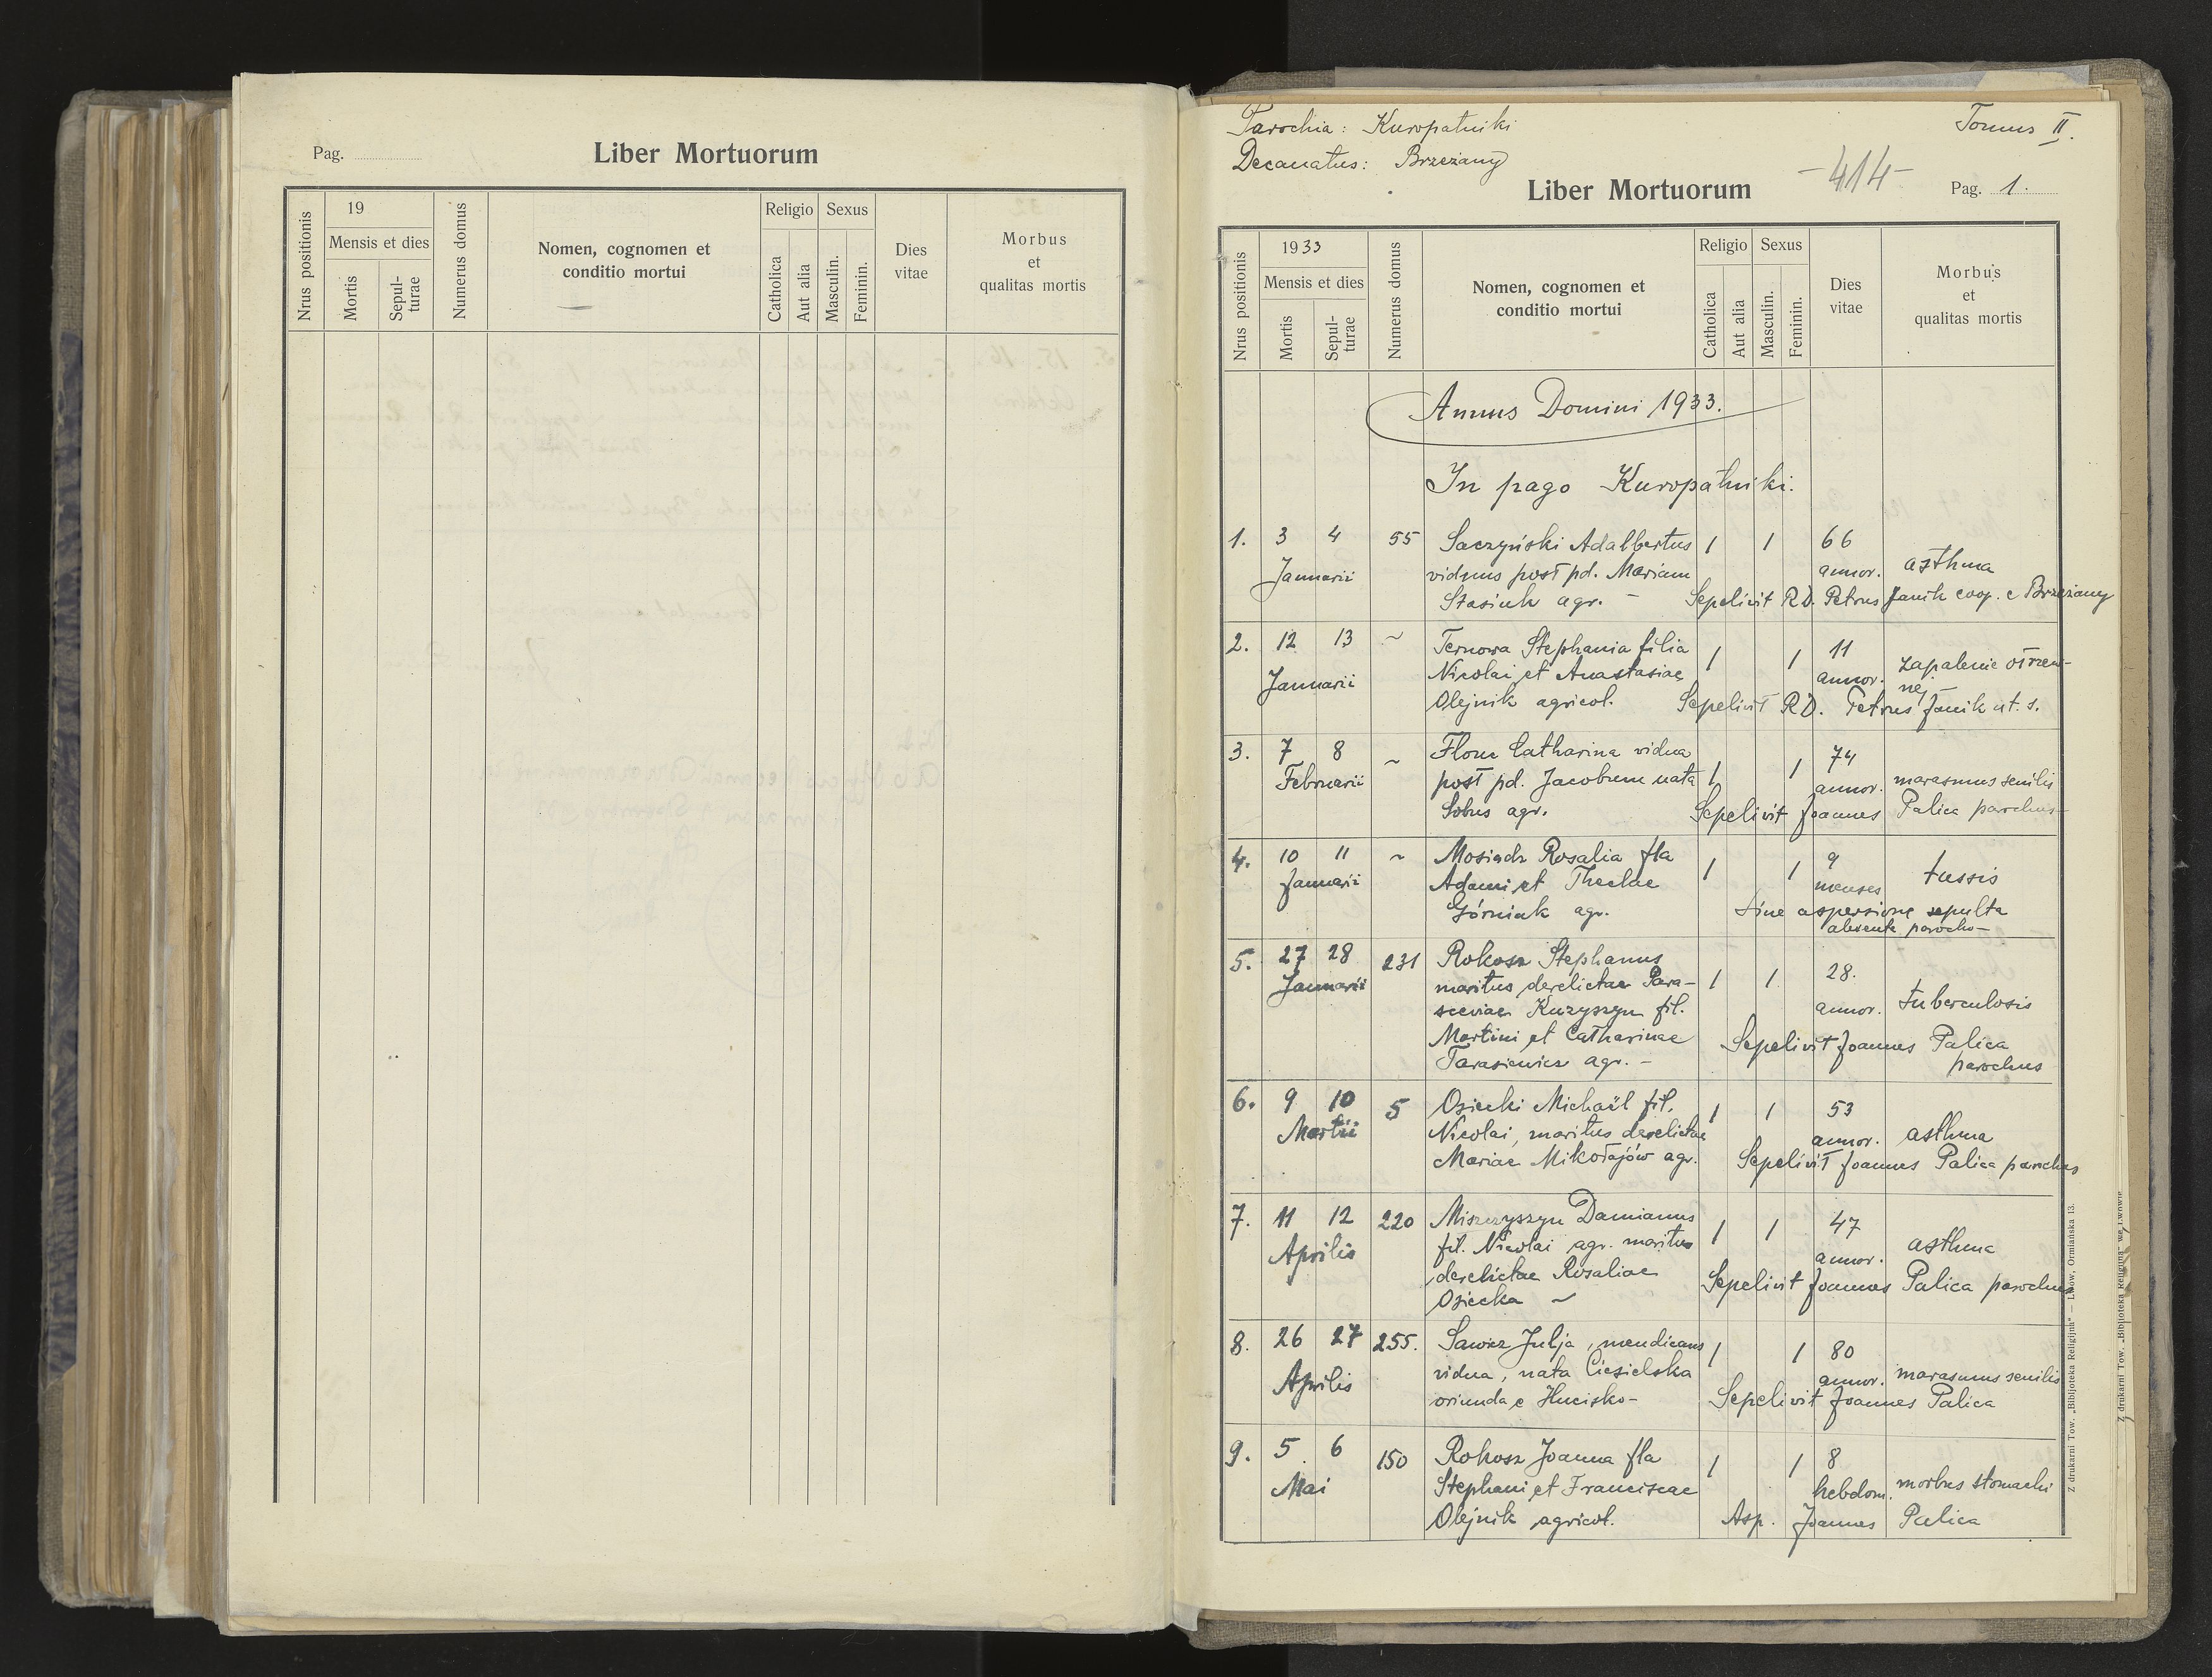 Pag.
Liber Mortuorum
Nrus positionis
19
Mensis et dies
Mortis
Sepul-
turae
Numerus domus
Nomen, cognomen et
conditio mortui
Religio
Catholica
Aut alia
Sexus
Masculin.
Feminin.
Dies
vitae
Morbus
et
qualitas mortis
Parochia: Kuropatniki
Decanatus: Brzeżany
Tomus II.
-414-
Liber Mortuorum
Pag. 1.
Nrus positionis
1933
Mensis et dies
Mortis
Sepul-
turae
Numerus domus
Nomen, cognomen et
conditio mortui
Religio
Catholica
Aut alia
Sexus
Masculin.
Feminin.
Dies
vitae
Morbus
et
qualitas mortis
Annus Domini 1933.
In pago Kuropatniki.
1. 3 4 55 Saczyński Adalbertus 1 1 66
Januarii viduus post pd. Mariam annor. asthma
Stasiuk agr. - Sepelivit RD. Petrus Janik coop. e Brzeżany
2. 12 13 ~ Ternowa Stephania filia 1 1 11 zapalenie otrzew-
Januarii Nicolai et Anastasiae annor. nej
Olejnik agricol. Sepelivit RD. Petrus Janik ut. s.
3. 7 8 ~ Flouc Catharina vidua 1 1 74
Februarii post pd. Jacobum nata annor. marasmus senilis
Sobus agr. Sepelivit Joannes Palica parochus
4. 10 11 ~ Mosiądz Rosalia fla 1 1 9 tussis
Januarii Adami et Theclae menses
Górniak agr. sine aspersione sepulta
absente parocho-
5. 27 28 231 Rokosz Stephanus 1 1 28.
Januarii maritus derelictae Para-
sceviae Kuzyszyn fil. annor. tuberculosis
Martini et Catharinae Sepelivit Joannes Palica
Tarasiewicz agr. - parochus
6. 9 10 5 Osiecki Michaël fil. 1 1 53
Martii Nicolai, maritus derelictae annor. asthma
Mariae Mikołajów agr. Sepelivit Joannes Palica parochus
7. 11 12 220 Miszczyszyn Damianus 1 1 47
Aprilis fil. Nicolai agr. maritus annor. asthma
derelictae Rosaliae Sepelivit Joannes Palica parochus
Osiecka ~
8. 26 27 255. Sawicz Julja, mendicans 1 1 80
Aprilis vidua, nata Ciesielska annor. marasmus senilis
oriunda e Hucisko- Sepelivit Joannes Palica
9. 5 6 150 Rokosz Joanna fla 1 1 8
Mai Stephani et Franciscae hebdom. morbus stomachi
Olejnik agricol. Asp. Joannes Palica
Z drukarni Tow. „Bibljoteka Religijna" — Lwów, Ormiańska 13.
Z drukarni Tow. „Bibljoteka Religijna" we Lwowie